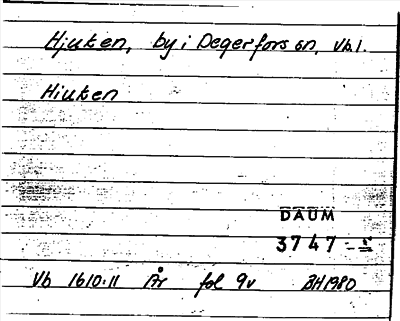 Hjuken, by i Degerfors sn, Vb.l.
Hiuken
DAUM
3747
Vb 1610:11 År fol 9v BH1980